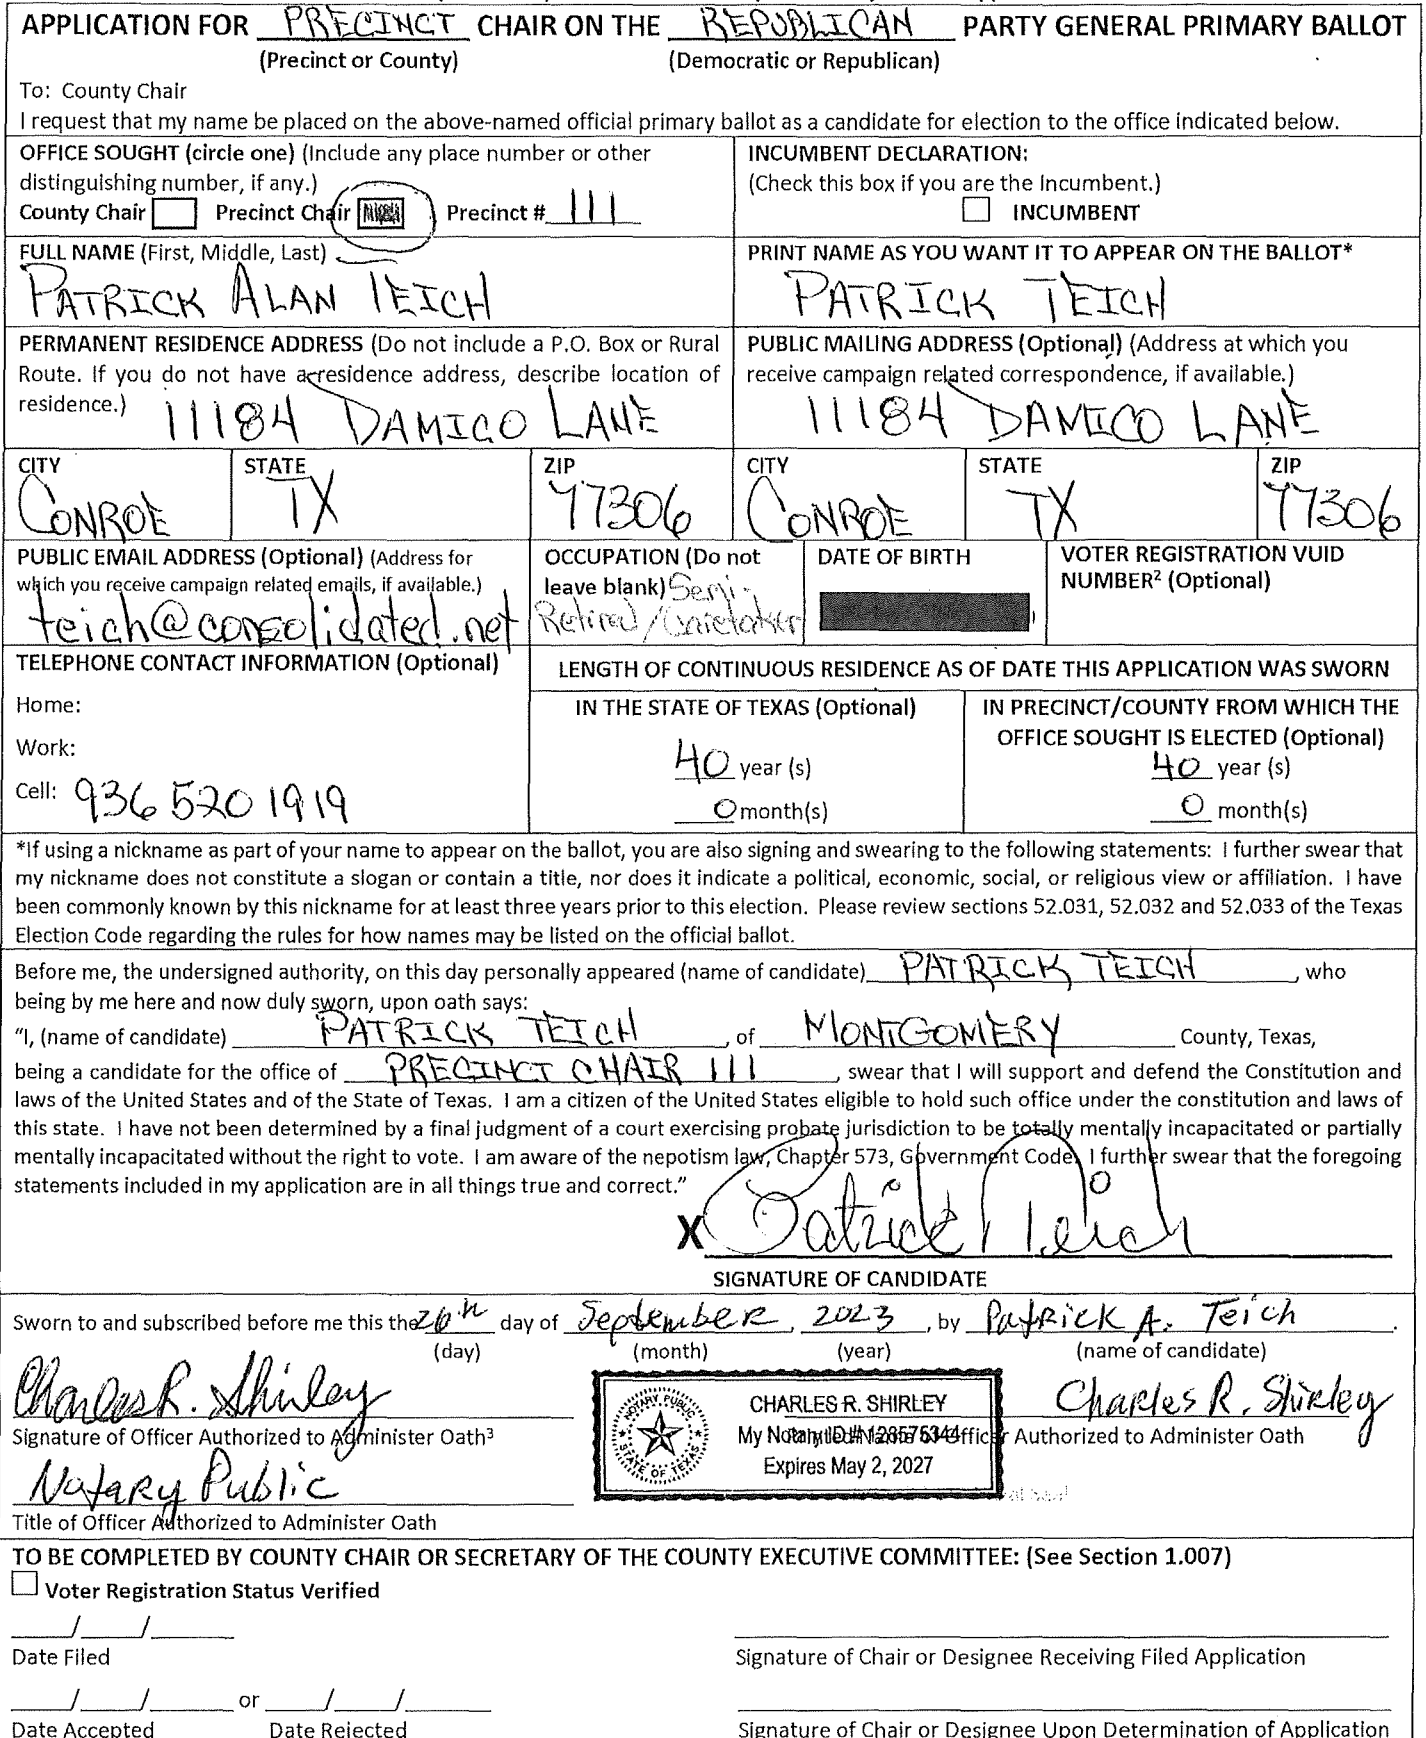 APPLICATION FOR PRECINCT CHAIR ON THE REPUBLICAN PARTY GENERAL PRIMARY BALLOT
(Precinct or County) (Democratic or Republican)
To: County Chair
I request that my name be placed on the above-named official primary ballot as a candidate for election to the office indicated below.
OFFICE SOUGHT (circle one) (Include any place number or other
distinguishing number, if any.)
County Chair Precinct Chair Precinct # 111
INCUMBENT DECLARATION:
(Check this box if you are the Incumbent.)
INCUMBENT
FULL NAME (First, Middle, Last)
PATRICK ALAN TEICH
PRINT NAME AS YOU WANT IT TO APPEAR ON THE BALLOT*
PATRICK TEICH
PERMANENT RESIDENCE ADDRESS (Do not include a P.O. Box or Rural
Route. If you do not have a residence address, describe location of
residence.) 11184 DAMICO LANE
PUBLIC MAILING ADDRESS (Optional) (Address at which you
receive campaign related correspondence, if available.)
11184 DAMICO LANE
CITY STATE ZIP CITY STATE ZIP
CONROE TX 77306 CONROE TX 77306
PUBLIC EMAIL ADDRESS (Optional) (Address for
which you receive campaign related emails, if available.)
teich@consolidated.net
OCCUPATION (Do not
leave blank) Semi-
Retired/Caretaker
DATE OF BIRTH
VOTER REGISTRATION VUID
NUMBER² (Optional)
TELEPHONE CONTACT INFORMATION (Optional)
Home:
Work:
Cell: 936 520 1919
LENGTH OF CONTINUOUS RESIDENCE AS OF DATE THIS APPLICATION WAS SWORN
IN THE STATE OF TEXAS (Optional)
40 year (s)
0 month(s)
IN PRECINCT/COUNTY FROM WHICH THE
OFFICE SOUGHT IS ELECTED (Optional)
40 year (s)
0 month(s)
*If using a nickname as part of your name to appear on the ballot, you are also signing and swearing to the following statements: I further swear that
my nickname does not constitute a slogan or contain a title, nor does it indicate a political, economic, social, or religious view or affiliation. I have
been commonly known by this nickname for at least three years prior to this election. Please review sections 52.031, 52.032 and 52.033 of the Texas
Election Code regarding the rules for how names may be listed on the official ballot.
Before me, the undersigned authority, on this day personally appeared (name of candidate) PATRICK TEICH, who
being by me here and now duly sworn, upon oath says:
"I, (name of candidate) PATRICK TEICH, of MONTGOMERY County, Texas,
being a candidate for the office of PRECINCT CHAIR 111, swear that I will support and defend the Constitution and
laws of the United States and of the State of Texas. I am a citizen of the United States eligible to hold such office under the constitution and laws of
this state. I have not been determined by a final judgment of a court exercising probate jurisdiction to be totally mentally incapacitated or partially
mentally incapacitated without the right to vote. I am aware of the nepotism law, Chapter 573, Government Code. I further swear that the foregoing
statements included in my application are in all things true and correct."
X Patrick Teich
SIGNATURE OF CANDIDATE
Sworn to and subscribed before me this the 26th day of September, 2023, by Patrick A. Teich.
(day) (month) (year) (name of candidate)
Charles R. Shirley
Signature of Officer Authorized to Administer Oath³
Notary Public
Title of Officer Authorized to Administer Oath
NOTARY PUBLIC
STATE OF TEXAS
CHARLES R. SHIRLEY
My Notary ID # 128575344
Expires May 2, 2027
Charles R. Shirley
Officer Authorized to Administer Oath
TO BE COMPLETED BY COUNTY CHAIR OR SECRETARY OF THE COUNTY EXECUTIVE COMMITTEE: (See Section 1.007)
Voter Registration Status Verified
___/___/_____
Date Filed
Signature of Chair or Designee Receiving Filed Application
___/___/_____ or ___/___/_____
Date Accepted Date Rejected
Signature of Chair or Designee Upon Determination of Application